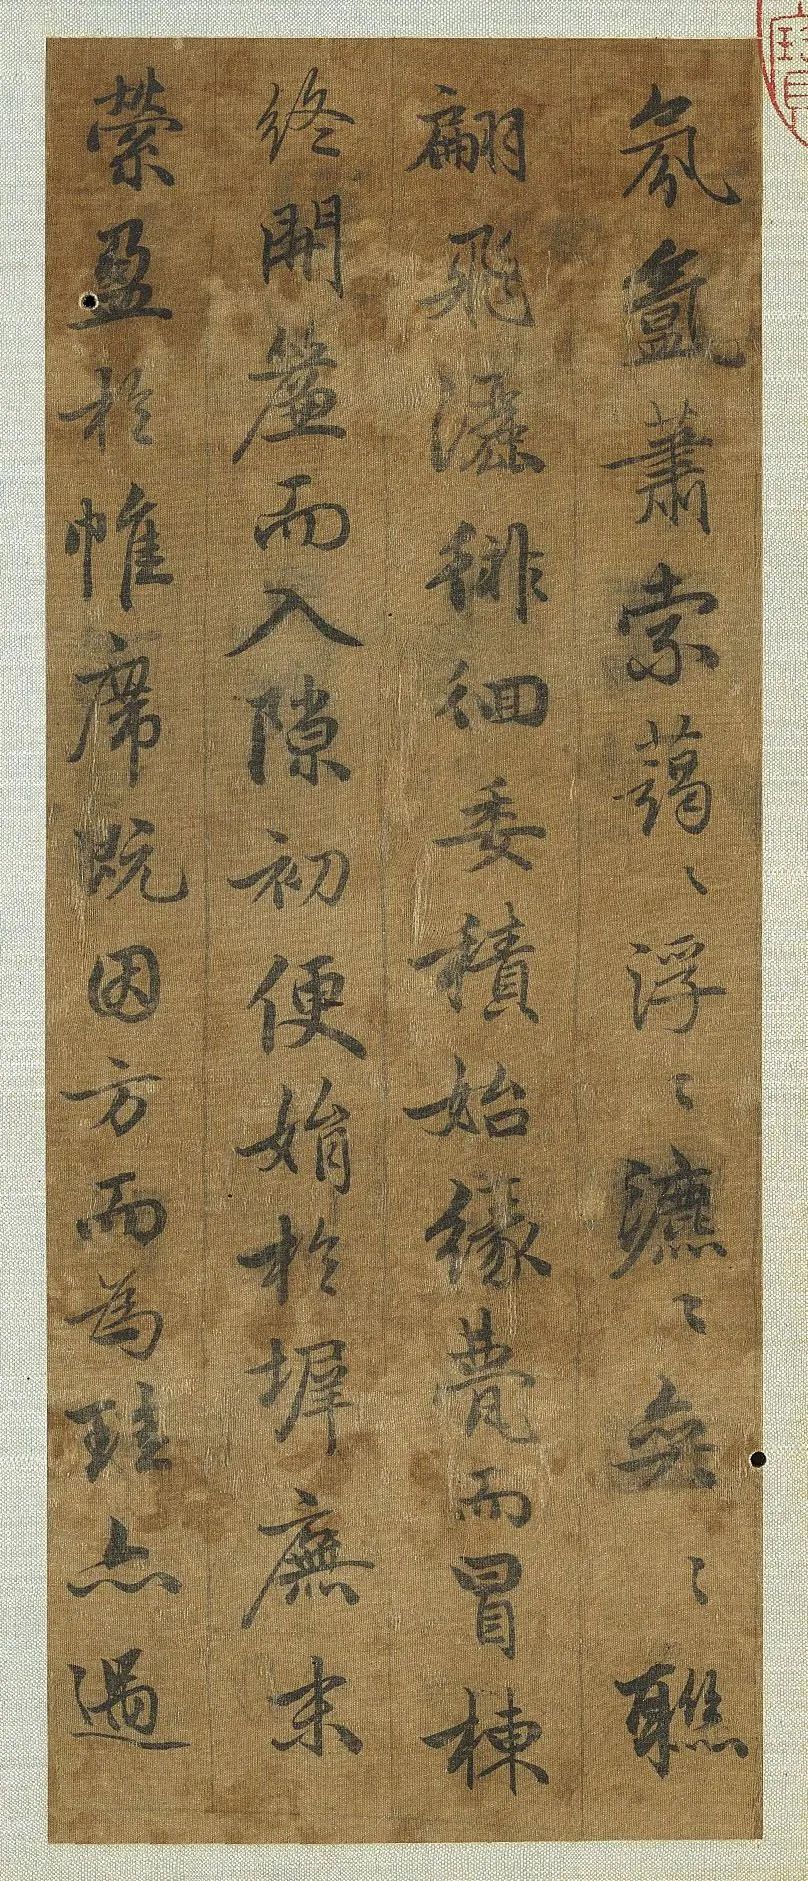 氛氳蕭索藹〻浮〻瀌〻奕〻聯
翩飛灑徘徊委積始緣甍而冒棟
終開簾而入隙初便娟於墀廡末
縈盈於帷席既因方而為珪亦過